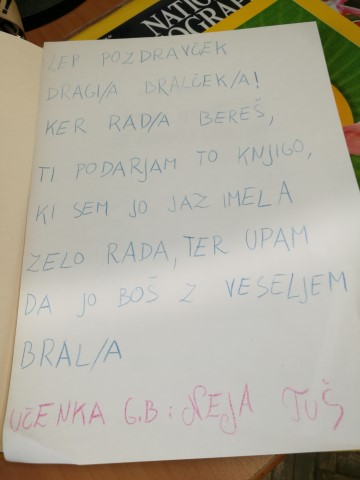 NATIONAL
GEOGRAPHIC
LEP POZDRAVČEK
DRAGI/A BRALČEK/A!
KER RAD/A BEREŠ,
TI PODARJAM TO KNJIGO,
KI SEM JO JAZ IMELA
ZELO RADA, TER UPAM
DA JO BOŠ Z VESELJEM
BRAL/A
UČENKA 6.B: NEJA TUŠ